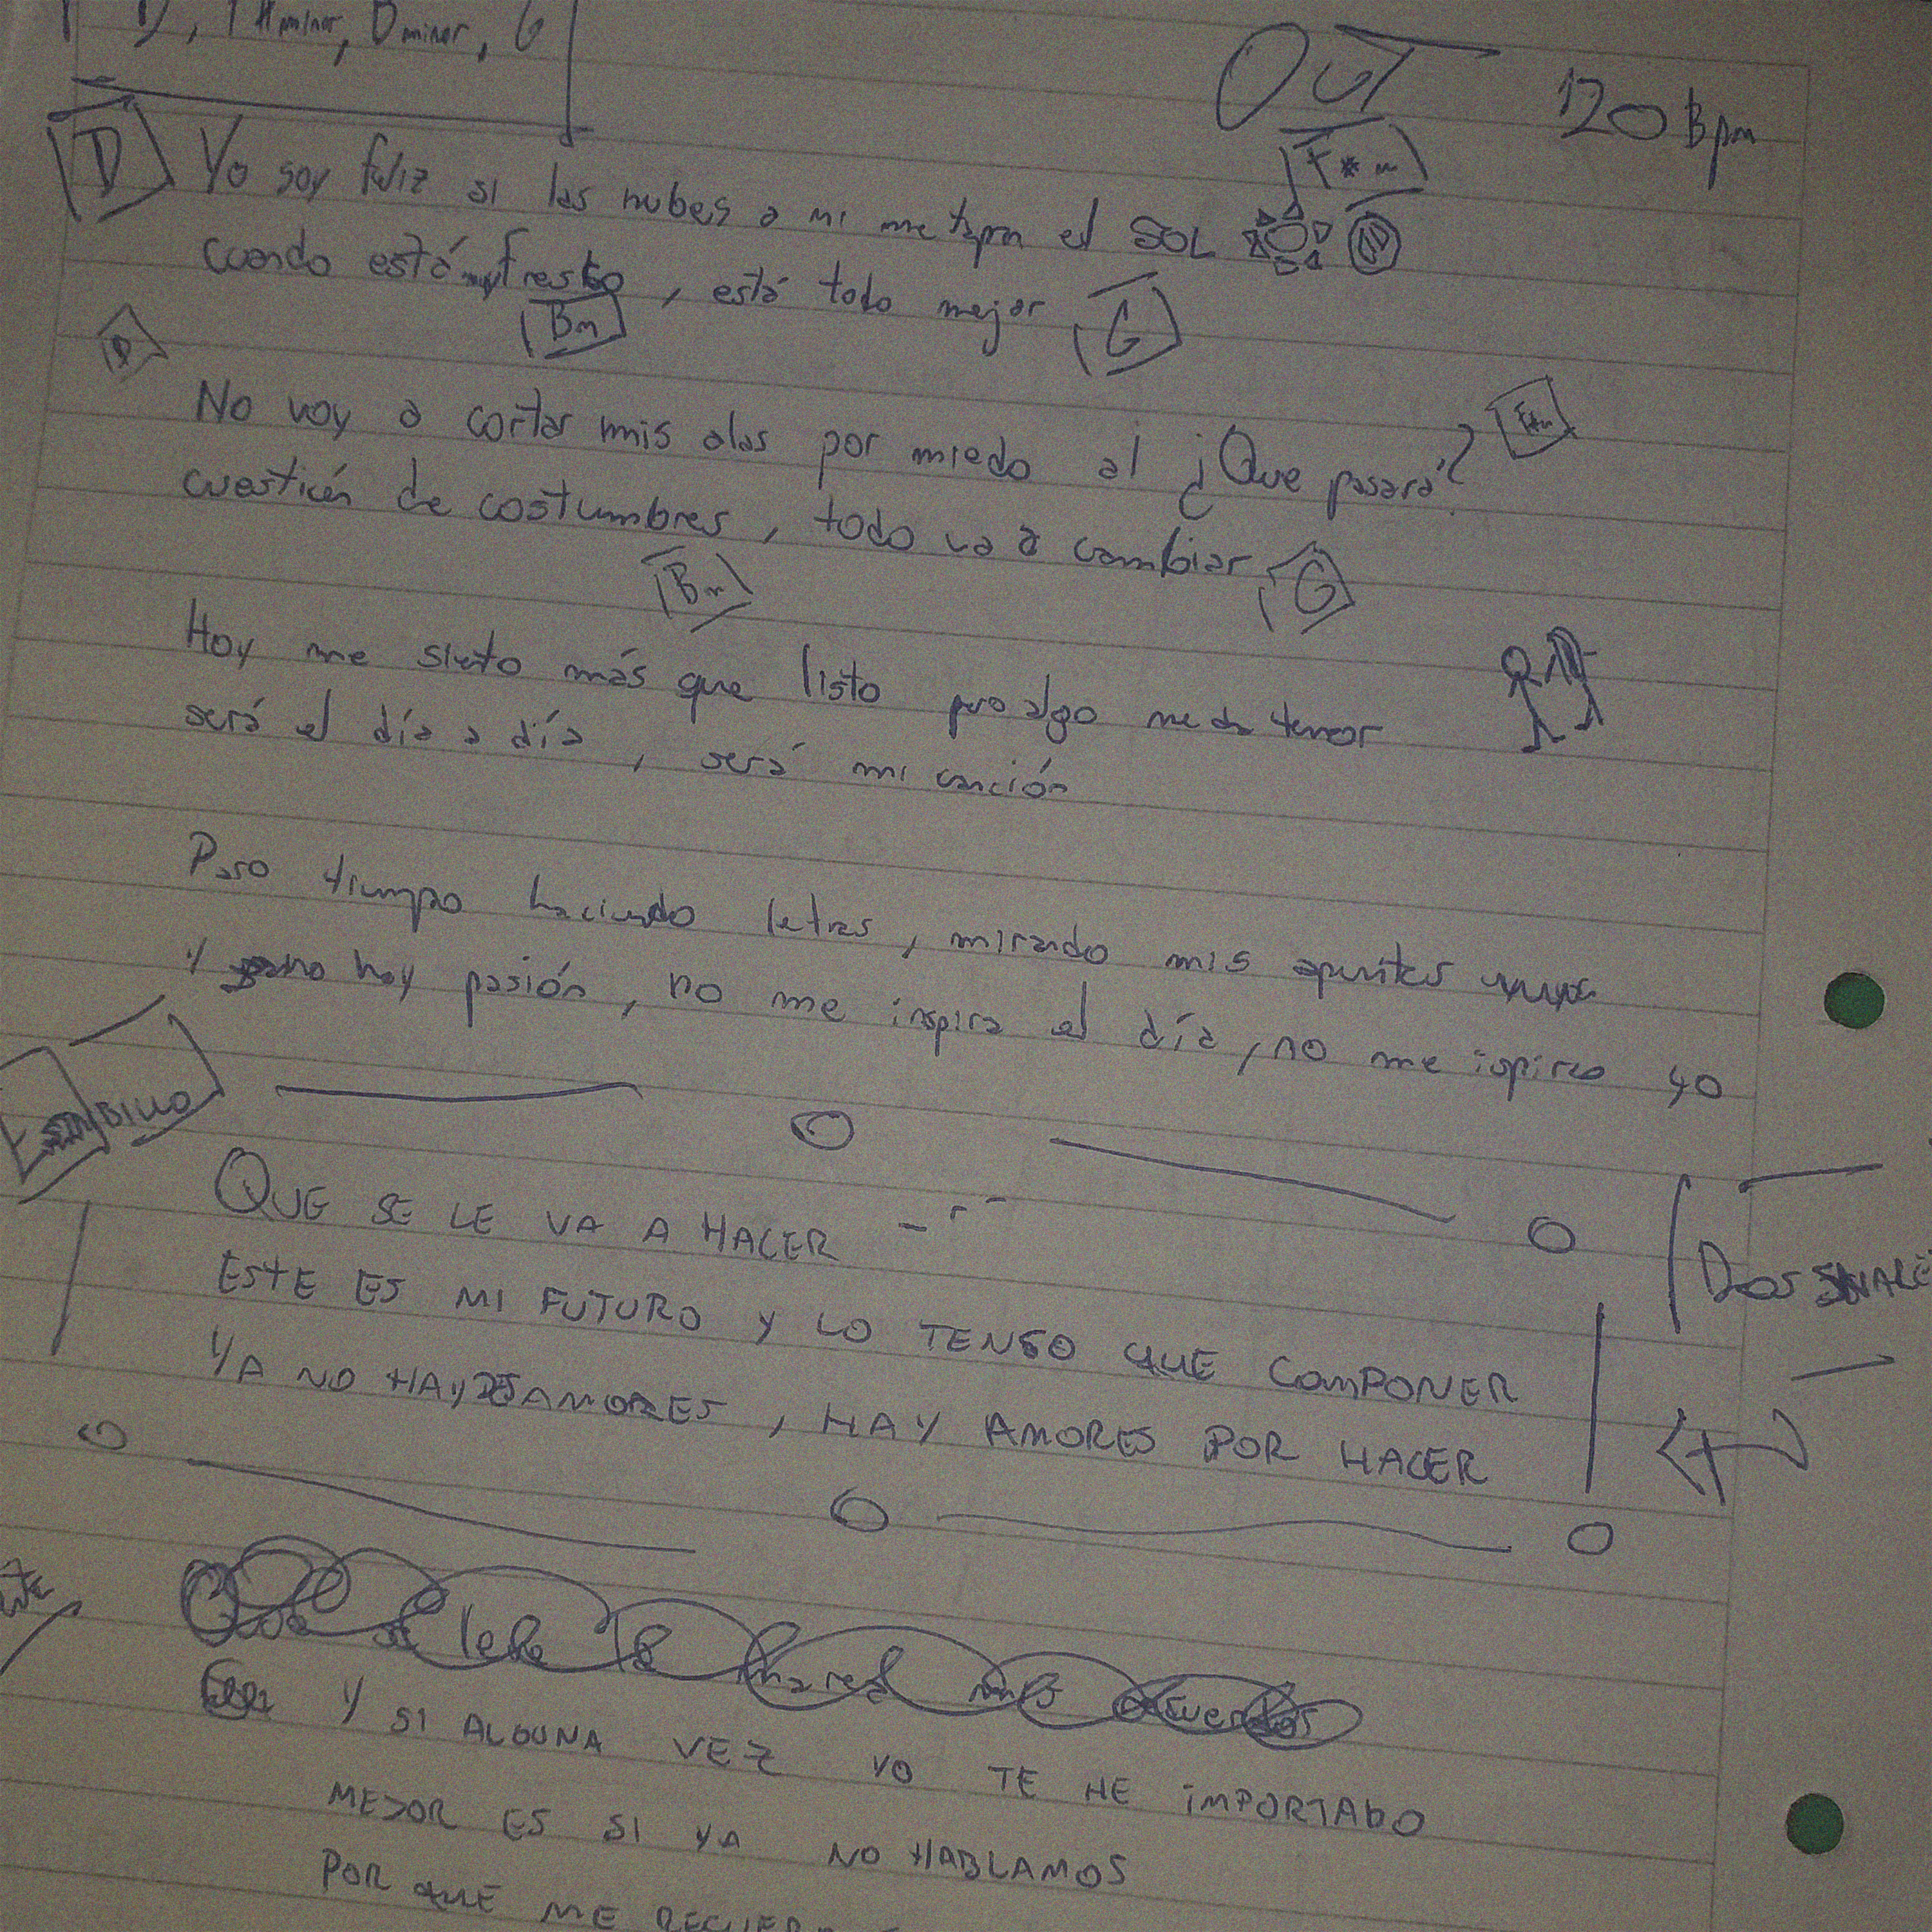 D, F#minor, Bminor, G
OUT
120 Bpm
D
F#m
Yo soy feliz si las nubes a mi me tapan el SOL
cuando está fresco, está todo mejor
Bm
G
No voy a cortar mis alas por miedo al ¿Que pasará?
F#m
cuestión de costumbres, todo va a cambiar
Bm
G
Hoy me sieto más que listo pero algo me da temor
será el día a día, será mi canción
Paso tiempo haciendo letras, mirando mis apuntes
y no hay pasión, no me inspira el día, no me ispiro yo
QUE SE LE VA A HACER
ESTE ES MI FUTURO Y LO TENGO QUE COMPONER
DOS
YA NO HAY DESAMORES, HAY AMORES POR HACER
Y SI ALGUNA VEZ YO TE HE IMPORTADO
MEJOR ES SI YA NO HABLAMOS
POR QUE ME